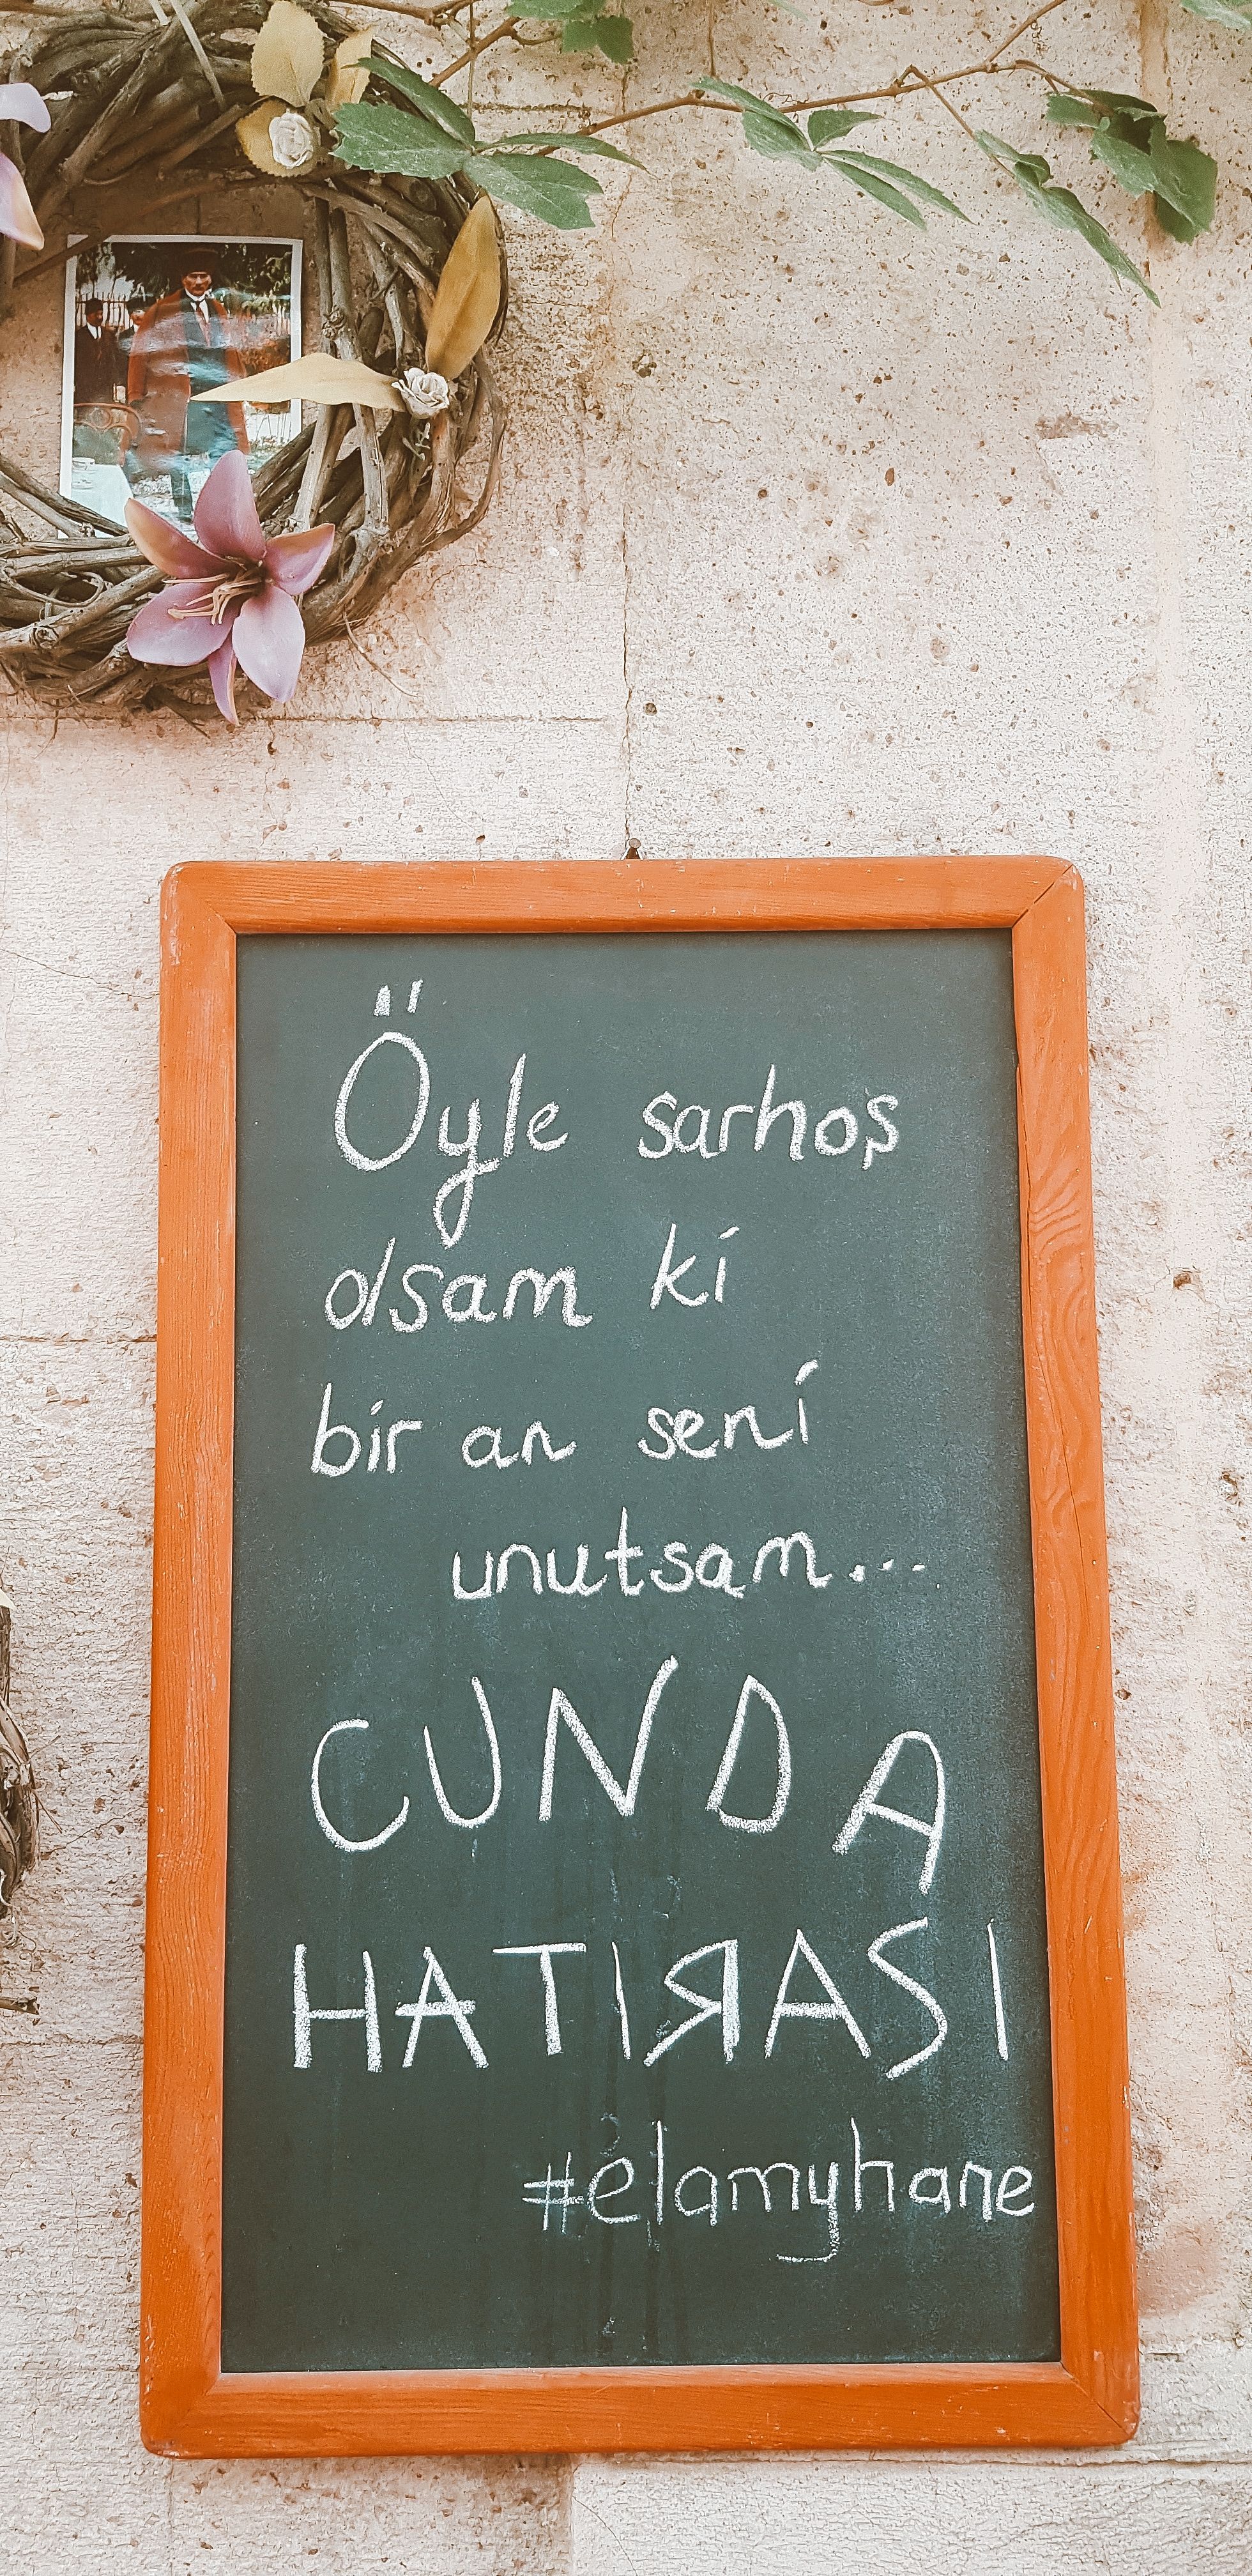 Öyle sarhoş
olsam ki
bir an seni
unutsam...
CUNDA
HATIRASI
#elamyhane